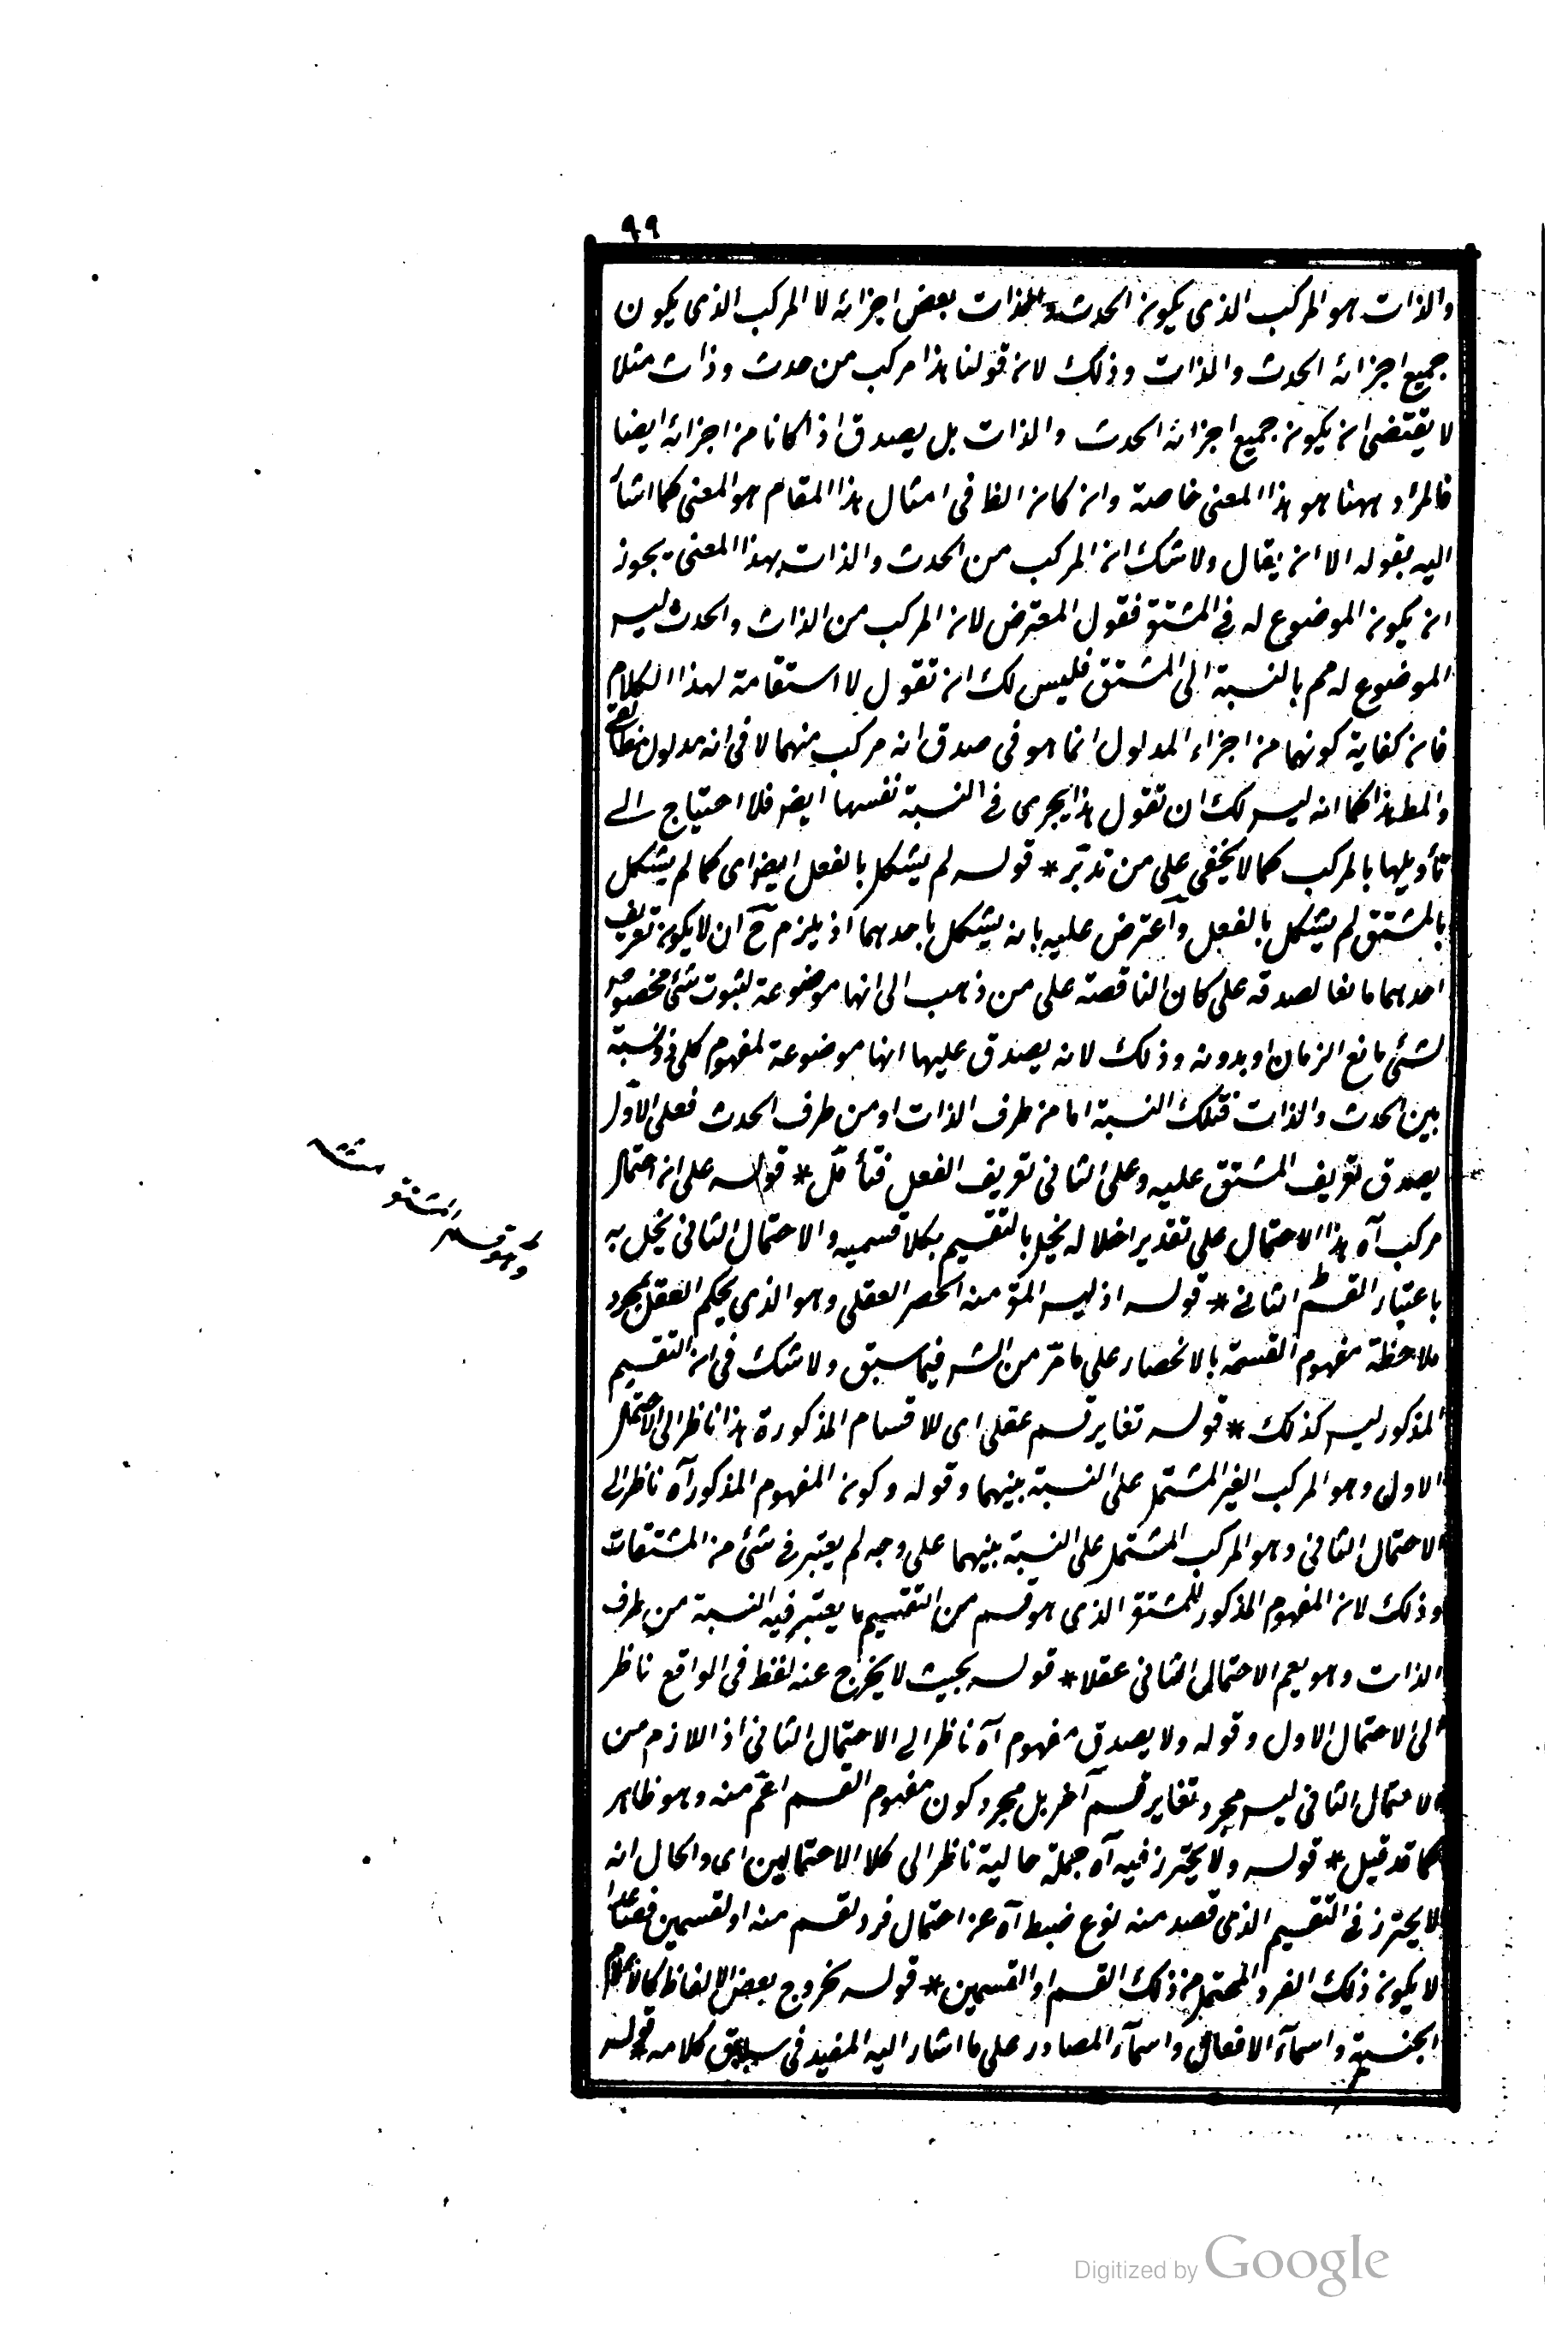 ٩٩
والذات هو المركب الذى يكون الحدث والذات بعض اجزائه لا المركب الذى يكون
جميع اجزائه الحدث والذات وذلك لان قولنا هذا مركب من حدث وذات مثلا
لا يقتضى ان يكون جميع اجزائه الحدث والذات بل يصدق اذا كانا من اجزائه ايضا
فالمراد ههنا هو هذا المعنى خاصة وان كان الظ فى امثال هذا المقام هو المعنى كما اشار
اليه بقوله الا ان يقال ولا شك ان المركب من الحدث والذات بهذا المعنى يجوز
ان يكون الموضوع له فى المشتق فقول المعترض لان المركب من الذات والحدث ليس
الموضوع له مم بالنسبة الى المشتق فليس لك ان تقول لا استقامة لهذا الكلام
فان كفاية كونهما من اجزاء المدلول انما هو فى صدق انه مركب منهما لا فى انه مدلول
والمط هذا كما انه ليس لك ان تقول هذا يجرى فى النسبة نفسها ايضر فلا احتياج الى
تأويلها بالمركب كما لا يخفى على من تدبّر * قوله لم يشكل بالفعل ايضر اى كما لم يشكل
بالمشتق لم يشكل بالفعل وآعترض عليه بانه يشكل باحدهما اذ يلزم ح ان لا يكون تعريف
احدهما مانعا لصدقه على كان الناقصة على من ذهب الى انها موضوعة لثبوت شئ مخصوص
لشئ ما مع الزمان او بدونه وذلك لانه يصدق عليها انها موضوعة لمفهوم كلى ذو نسبة
بين الحدث والذات فتلك النسبة اما من طرف الذات او من طرف الحدث فعلى الاول
يصدق تعريف المشتق عليه وعلى الثانى تعريف الفعل فتأمّل * قوله على ان احتمال
مركب آه هذا الاحتمال على تقدير اخلاله يخل بالتقسيم بكلا قسميه والاحتمال الثانى يخل به
وهو قسم المشتق منه
باعتبار القسم الثانى * قوله اذ ليس المق منه الحصر العقلى وهو الذى يحكم العقل بمجرد
ملاحظة مفهوم القسمة بالانحصار على ما مرّ من الش فيما سبق ولا شك فى ان التقسيم
المذكور ليس كذلك * قوله تغاير قسم عقلى اى للاقسام المذكورة هذا ناظر الى الاحتمال
الاول وهو المركب الغير المشتمل على النسبة بينهما وقوله وكون المفهوم المذكور آه ناظر الى
الاحتمال الثانى وهو المركب المشتمل على النسبة بينهما على وجه لم يعتبر فى شئ من المشتقات
وذلك لان المفهوم المذكور للمشتق الذى هو قسم من التقسيم ما يعتبر فيه النسبة من طرف
الذات وهو يعم الاحتمال الثانى عقلا * قوله بحيث لا يخرج عنه لفظ فى الواقع ناظر
الى الاحتمال الاول وقوله ولا يصدق مفهوم آه ناظر الى الاحتمال الثانى اذ اللازم من
الاحتمال الثانى ليس مجرد تغاير قسم آخر بل مجرد كون مفهوم القسم اعمّ منه وهو ظاهر
كما قد قيل * قوله ولا يحترز فيه آه جملة حالية ناظر الى كلا الاحتمالين اى والحال انه
لا يحترز فى التقسيم الذى قصد منه نوع ضبط آه عن احتمال فرد لقسم منه او لقسمين فصاعدا
لا يكون ذلك الفرد المحتمل من ذلك القسم او القسمين * قوله بخروج بعض الالفاظ كالاعلام
الجنسية واسمآء الافعال واسمآء المصادر على ما اشار اليه المفيد فى سياق كلامه * قوله
Digitized by Google